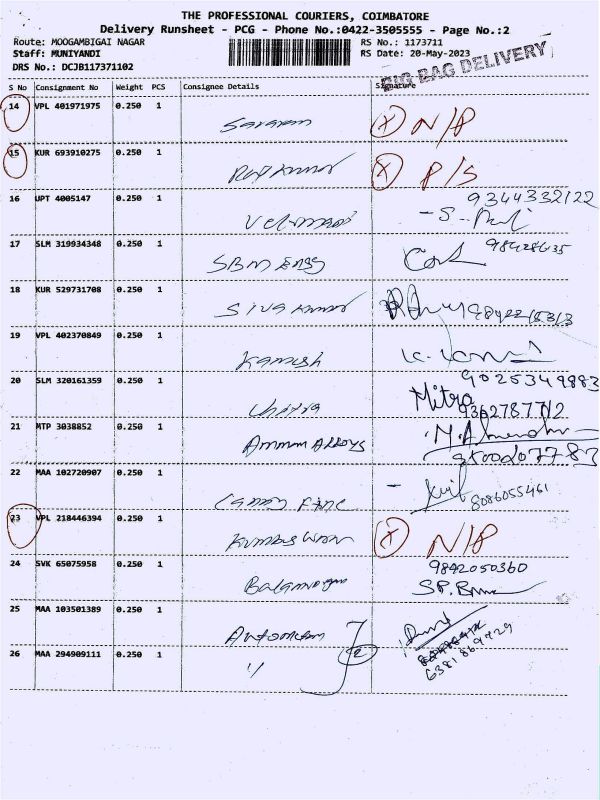 THE PROFESSIONAL COURIERS, COIMBATORE
Delivery Runsheet - PCG - Phone No.:0422-3505555 - Page No.:2
Route: MOOGAMBIGAI NAGAR RS No.: 1173711
Staff: MUNIYANDI RS Date: 20-May-2023
DRS No.: DCJB117371102
BIG BAG DELIVERY
S No Consignment No Weight PCS Consignee Details Signature
14 VPL 401971975 0.250 1 (X) N/P
15 KUR 693910275 0.250 1 (X) P/S
16 UPT 4005147 0.250 1 9344332122
17 SLM 319934348 0.250 1 SBM ENGG
18 KUR 529731708 0.250 1 Siva Kumar
19 VPL 402370849 0.250 1 Kamesh
9025349883
20 SLM 320161359 0.250 1 Chitra Mitra
9362787712
21 MTP 3038852 0.250 1 Ammm ALLOYS
22 MAA 102720907 0.250 1 8086055461
23 VPL 218446394 0.250 1 (X) N/P
24 SVK 65075958 0.250 1 9842050360
25 MAA 103501389 0.250 1
6381869729
26 MAA 294909111 0.250 1 "